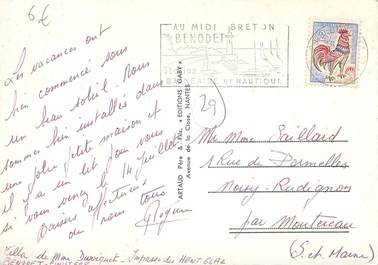 6€
AU MIDI BRETON
BENODET
Station
BALNEAIRE et NAUTIQUE
29
Les vacances ont
bien commencé sous
un beau soleil. Nous
sommes bien installés dans
une jolie petite maison et
il y a un lit pour vous
si vous venez le 14 Juillet
Baisers affectueux
de nous tous
ARTAUD Père & Fils, "EDITIONS GABY"
Avenue de la Close, NANTES
Mr Mme Saillard
1 Rue de Dormelles
Noisy-Rudignon
par Montereau
(S. et Marne)
Villa de Mme - Impasse du
BENODET - FINISTERE